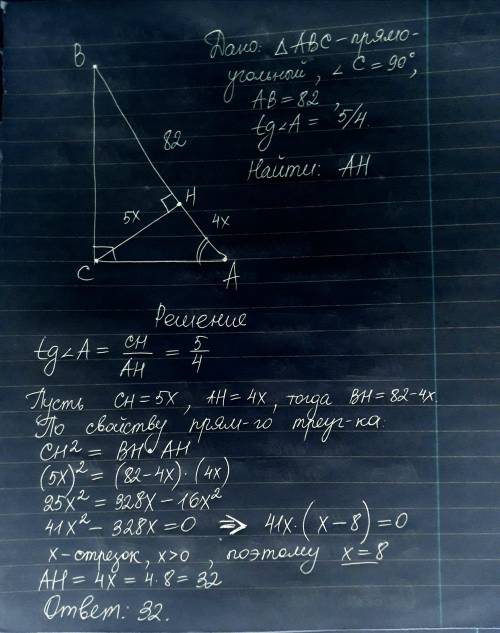 Дано: △ABC - прямо-
угольный, ∠C = 90°,
AB = 82,
tg∠A = 5/4.
Найти: AH
B
82
H
5x
4x
C
A
Решение
tg∠A = CH/AH = 5/4
Пусть CH = 5x, AH = 4x, тогда BH = 82-4x.
По свойству прям-го треуг-ка:
CH² = BH · AH
(5x)² = (82-4x) · (4x)
25x² = 328x - 16x²
41x² - 328x = 0 => 41x · (x - 8) = 0
x - отрезок, x>0, поэтому x = 8
AH = 4x = 4·8 = 32
Ответ: 32.